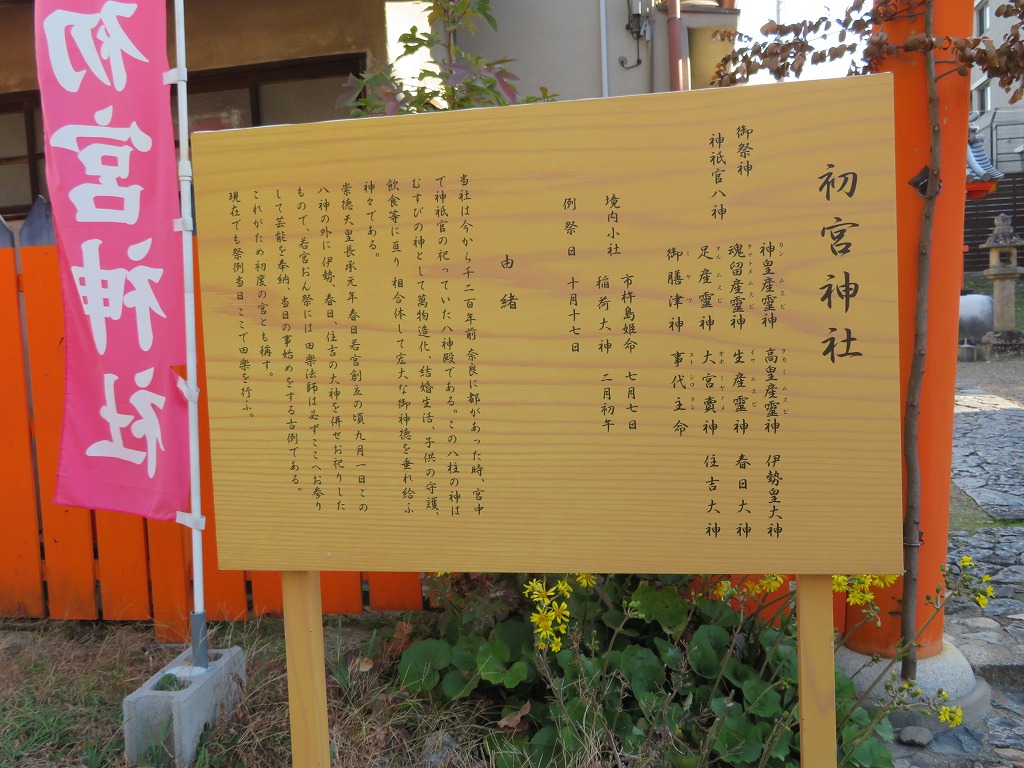 初宮神社
初宮神社
御祭神
神祇官八神
神皇産靈神 高皇産靈神 伊勢皇大神
魂留産靈神 生産靈神 春日大神
足産靈神 大宮賣神 住吉大神
御膳津神 事代主命
境内小社 市杵島姫命 七月七日
稲荷大神 二月初午
例祭日 十月十七日
由緒
当社は今から千二百年前 奈良に都があった時、宮中
で神祇官の祀っていた八神殿である。この八柱の神は
むすびの神として萬物造化、結婚生活、子供の守護、
飲食等に亘り 相合体して宏大な御神徳を垂れ給ふ
神々である。
崇徳天皇長承元年春日若宮創立の頃九月一日この
八神の外に伊勢、春日、住吉の大神を併せお祀りした
もので、若宮おん祭には 田楽法師は必ずここへお参り
して芸能を奉納、当日の事始めをする古例である。
これがため初度の宮とも稱す。
現在でも祭例当日ここで田楽を行ふ。